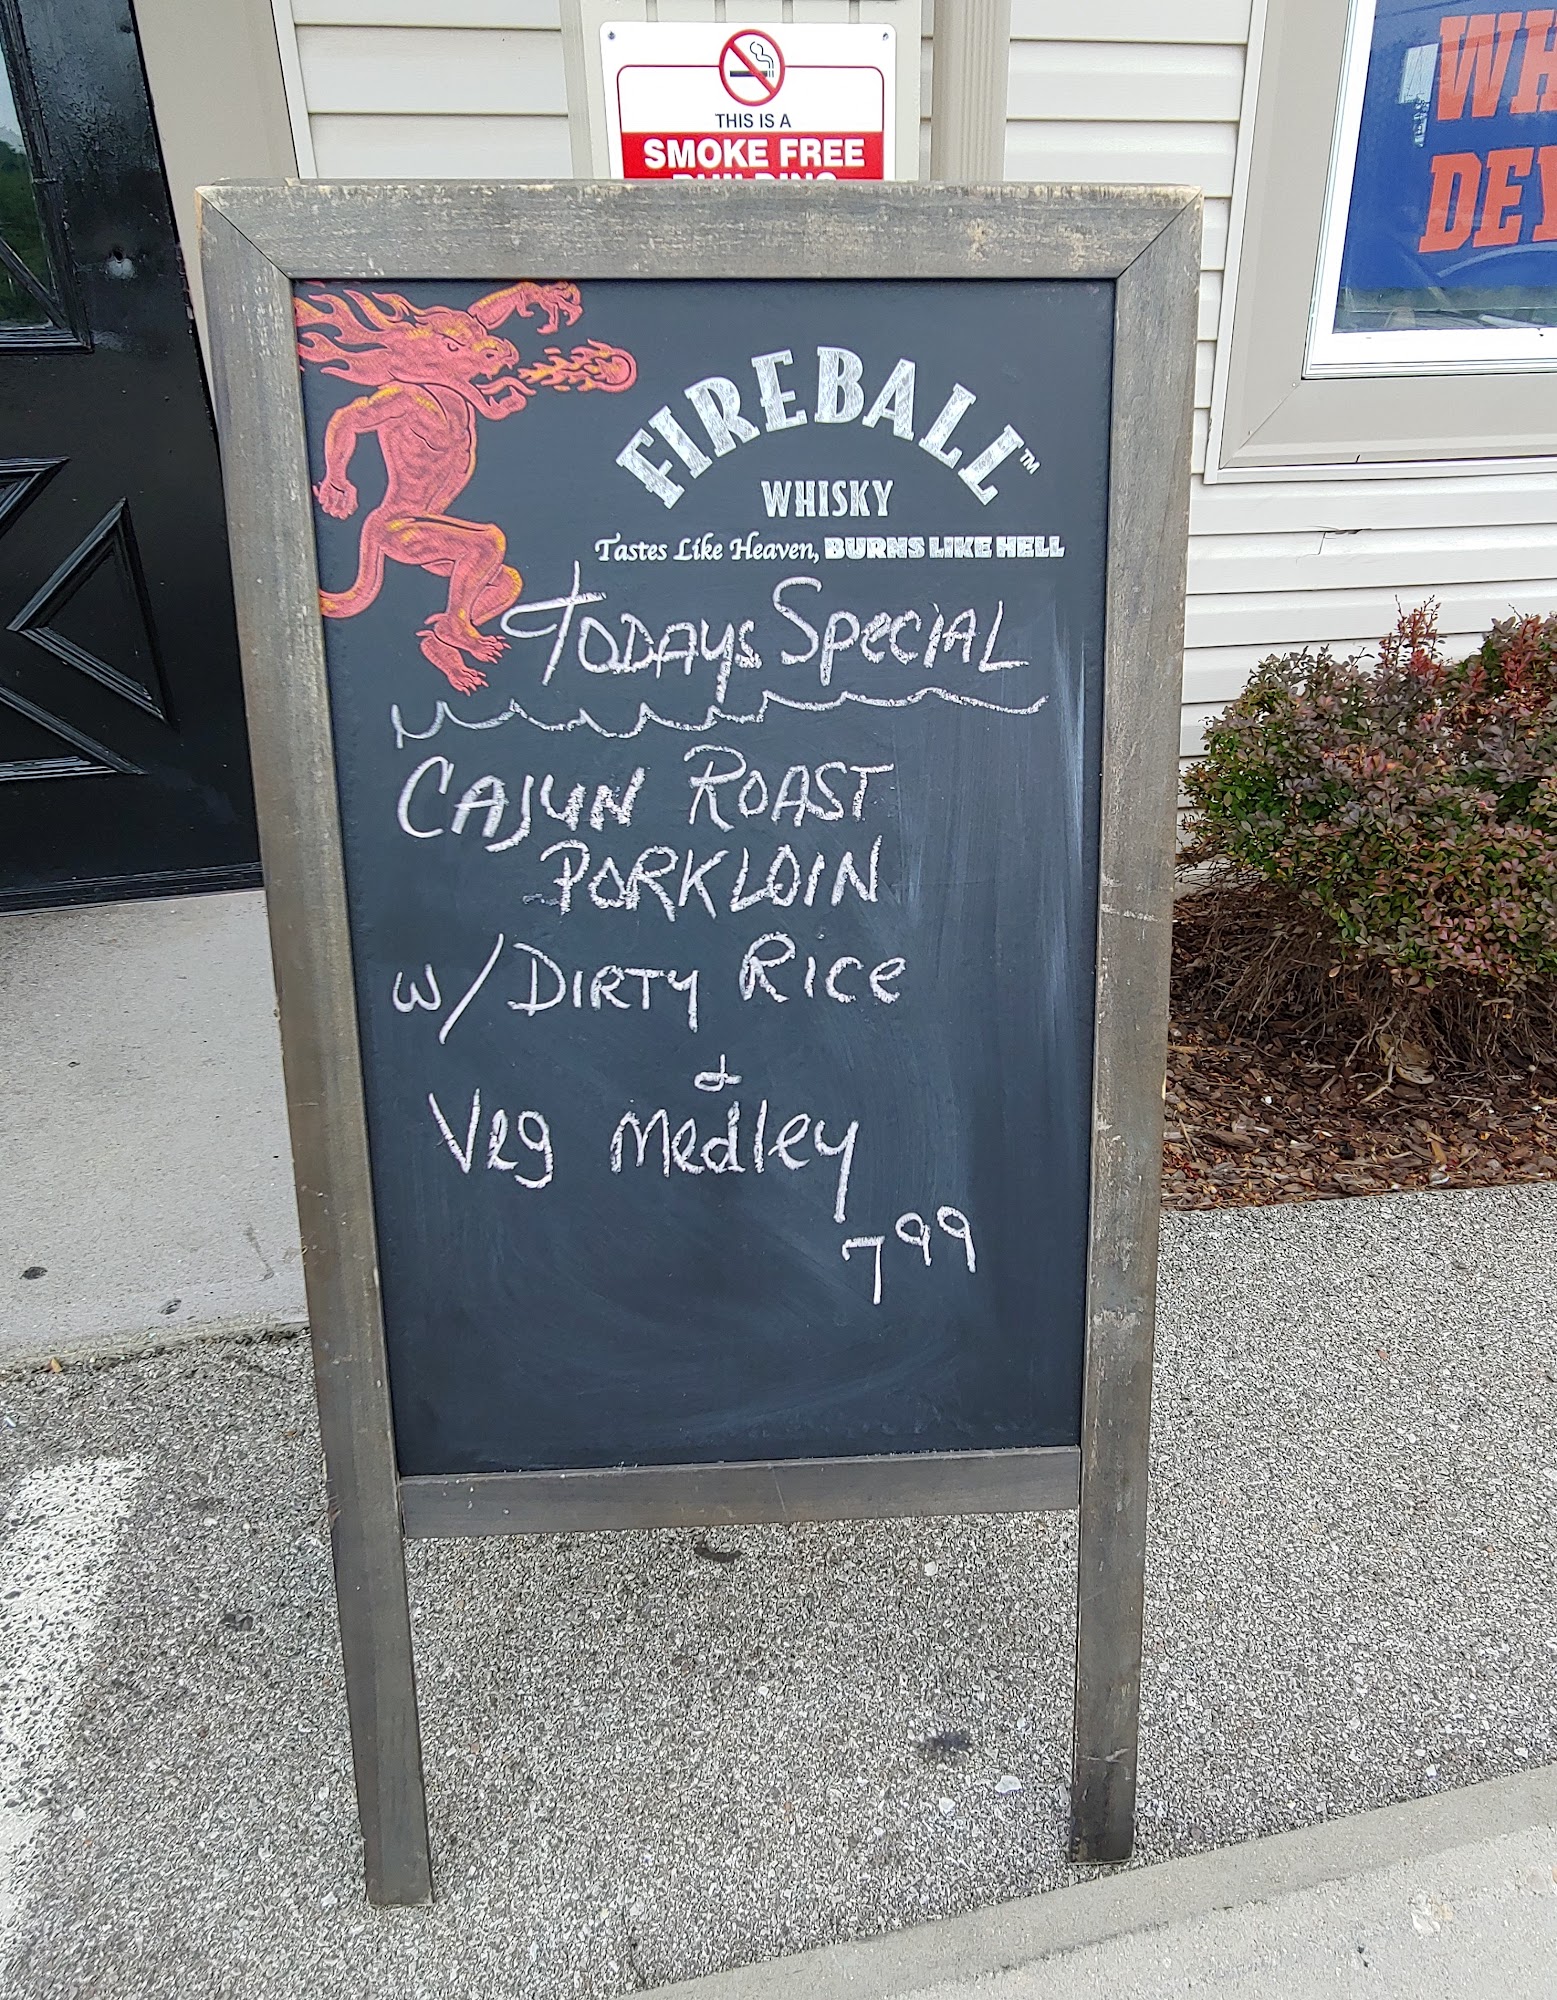 THIS IS A
SMOKE FREE
BUILDING
WH
DEY
FIREBALL™
WHISKY
Tastes Like Heaven, BURNS LIKE HELL
Todays Special
CAJUN ROAST
PORKLOIN
w/ DIRTY RICe
&
Veg Medley
7.99